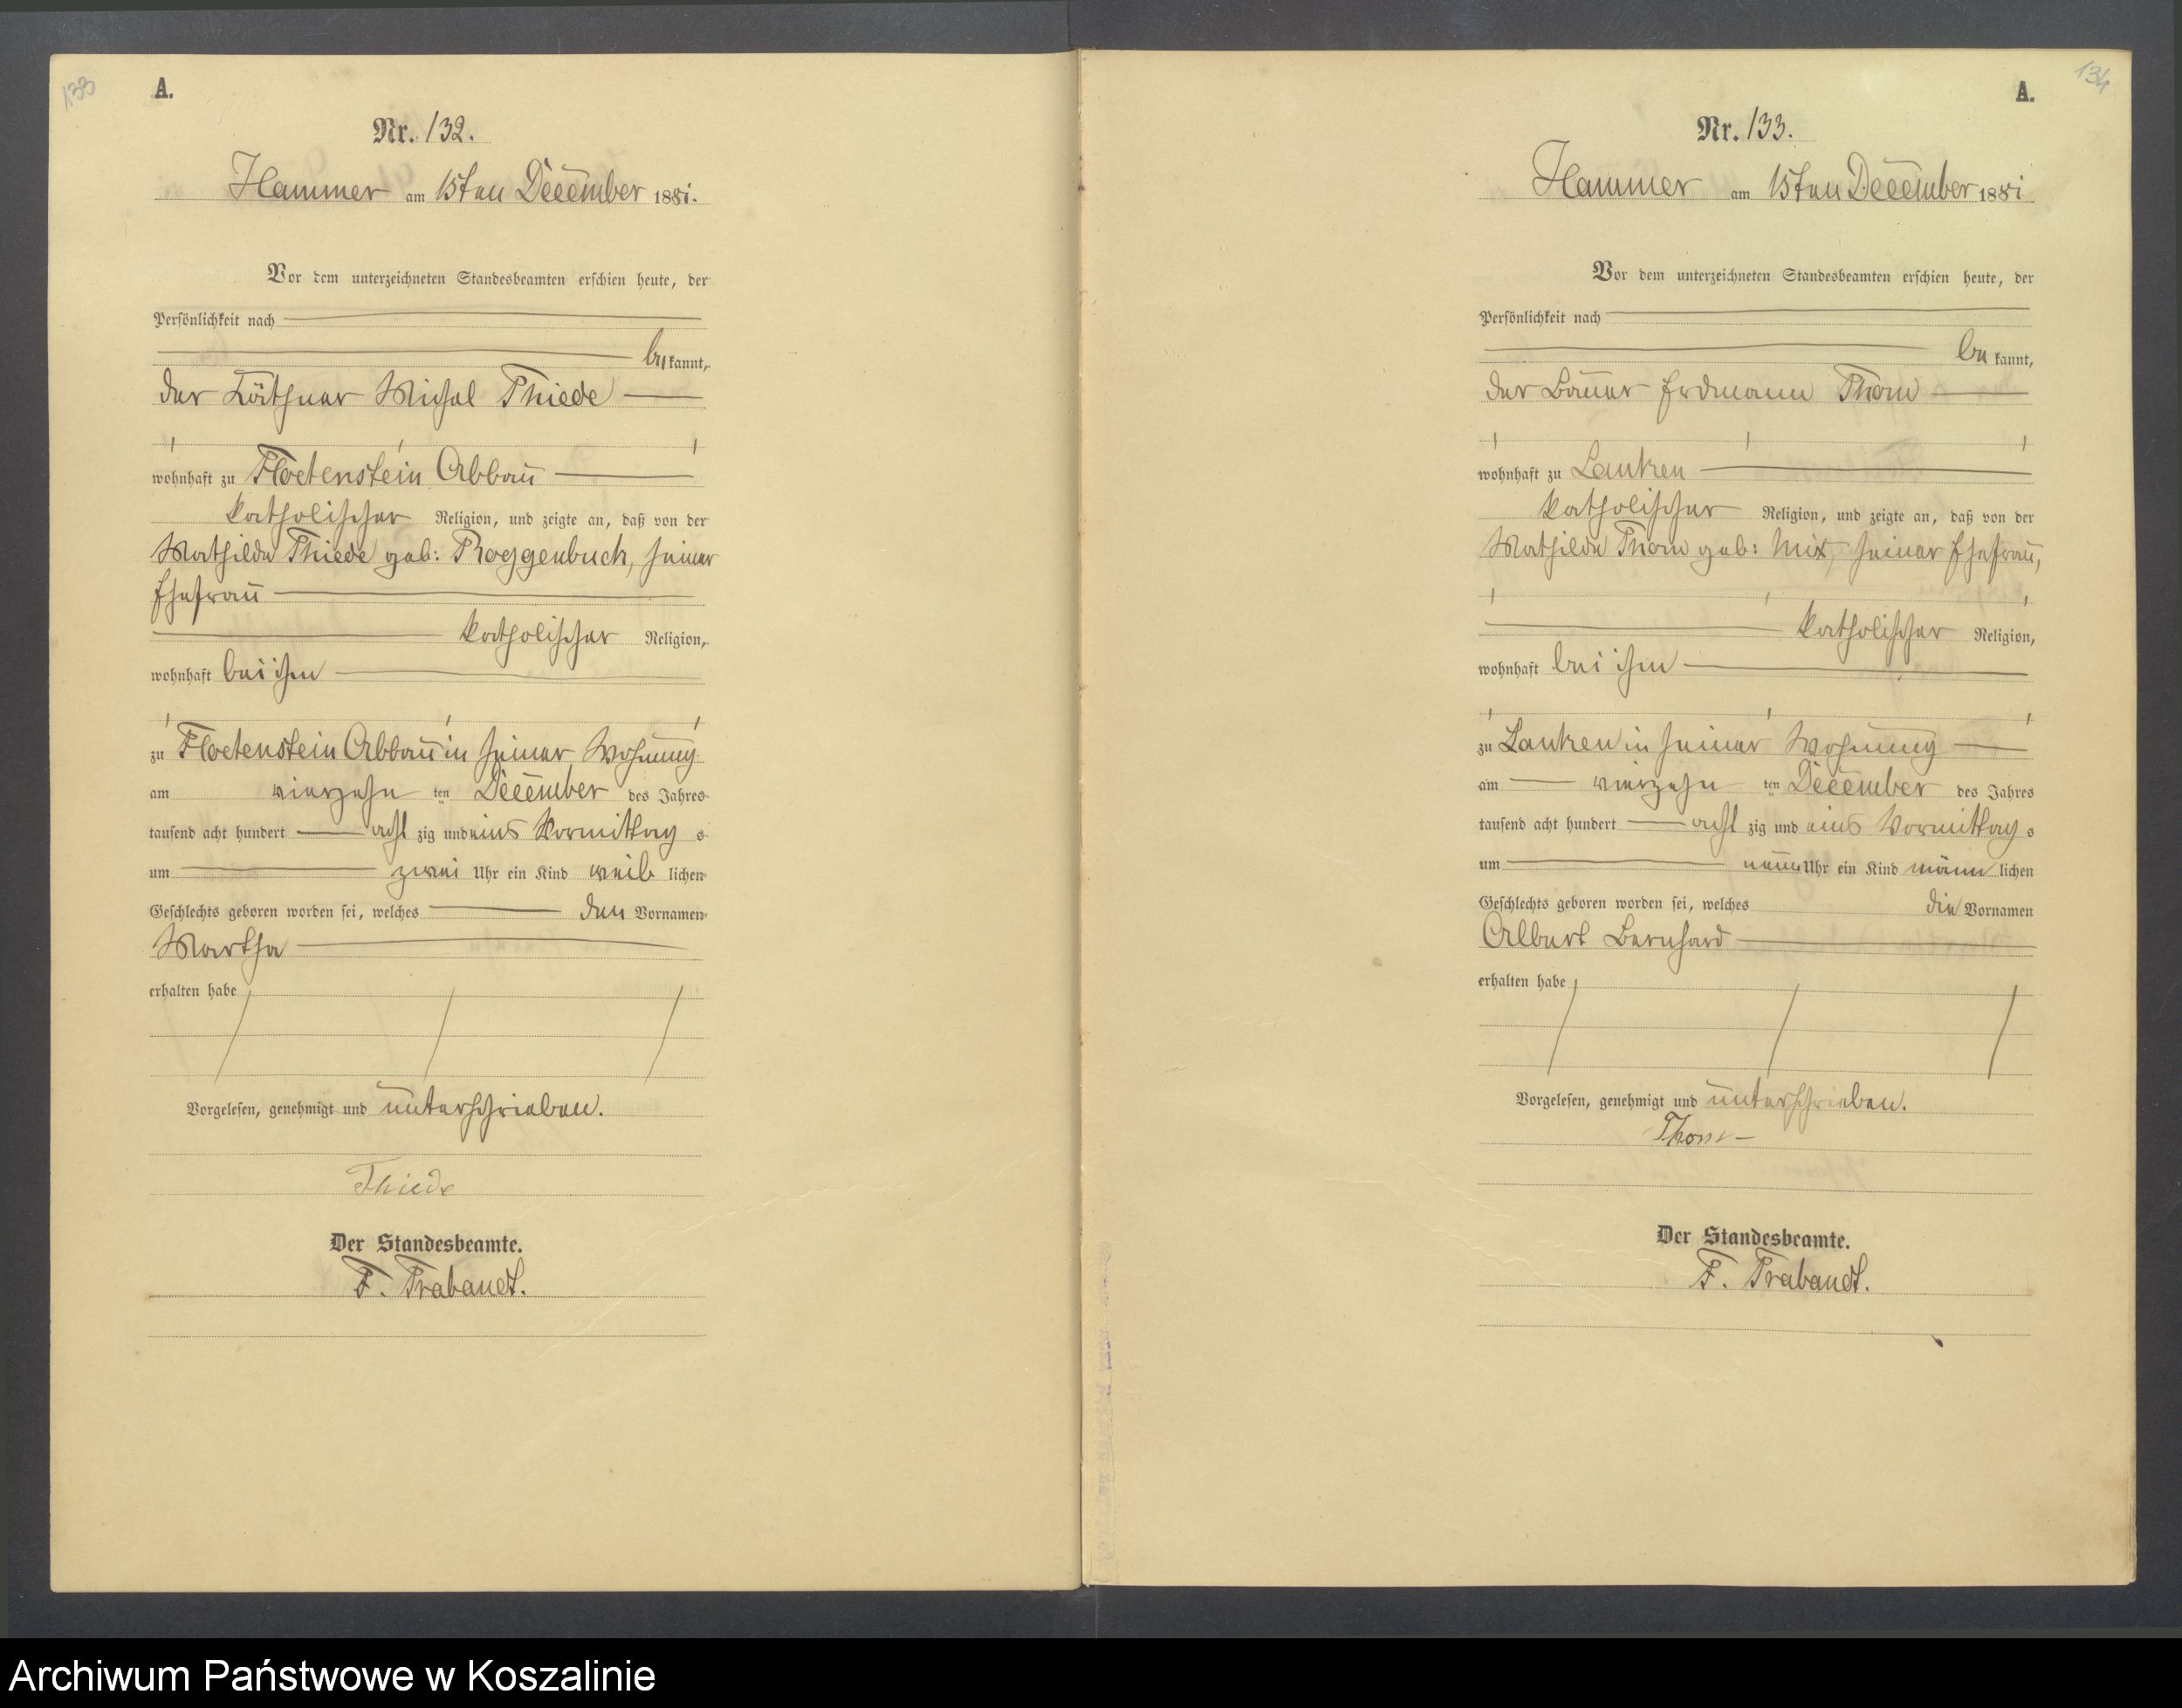 133
A.
Nr. 132.
Hammer am 15ten December 1881.
Vor dem unterzeichneten Standesbeamten erschien heute, der
Persönlichkeit nach
bekannt,
der Käthner Michal Thiede
wohnhaft zu Floetenstein Abbau
katholischer Religion, und zeigte an, daß von der
Mathilde Thiede geb: Roggenbuch, seiner
Ehefrau
katholischer Religion,
wohnhaft bei ihm
zu Floetenstein Abbau in seiner Wohnung
am vierzehn ten December des Jahres
tausend acht hundert acht zig und eins Vormittag s
um zwei Uhr ein Kind weib lichen
Geschlechts geboren worden sei, welches den Vornamen
Martha
erhalten habe
Vorgelesen, genehmigt und unterschrieben.
Thiede
Der Standesbeamte.
F. Trabandt.
134
A.
Nr. 133.
Hammer am 15ten December 1881
Vor dem unterzeichneten Standesbeamten erschien heute, der
Persönlichkeit nach
be kannt,
der Bauer Erdmann Thom
wohnhaft zu Lanken
katholischer Religion, und zeigte an, daß von der
Mathilde Thom geb: Mix, seiner Ehefrau,
katholischer Religion,
wohnhaft bei ihm
zu Lanken in seiner Wohnung
am vierzehn ten December des Jahres
tausend acht hundert acht zig und eins Vormittag s
um neun Uhr ein Kind männ lichen
Geschlechts geboren worden sei, welches die Vornamen
Albert Bernhard
erhalten habe
Vorgelesen, genehmigt und unterschrieben.
Thom
Der Standesbeamte.
F. Trabandt.
Archiwum Państwowe w Koszalinie